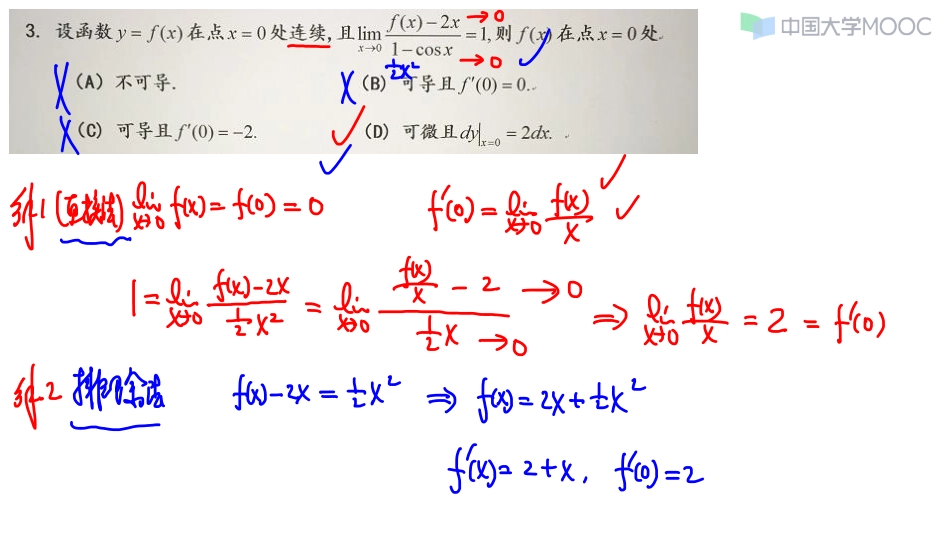 中国大学MOOC
3. 设函数 y = f(x) 在点 x = 0 处连续, 且 lim_{x→0} (f(x) − 2x →0)/(1 − cos x →0) = 1, 则 f(x) 在点 x = 0 处.
½x²
(A) 不可导. (B) 可导且 f′(0) = 0.
(C) 可导且 f′(0) = −2. (D) 可微且 dy|_{x=0} = 2dx.
解1 (直接法) lim_{x→0} f(x) = f(0) = 0 f′(0) = lim_{x→0} f(x)/x
1 = lim_{x→0} (f(x) − 2x)/(½x²) = lim_{x→0} (f(x)/x − 2 → 0)/(½x → 0) ⇒ lim_{x→0} f(x)/x = 2 = f′(0)
解2 排除法 f(x) − 2x = ½x² ⇒ f(x) = 2x + ½x²
f′(x) = 2 + x, f′(0) = 2